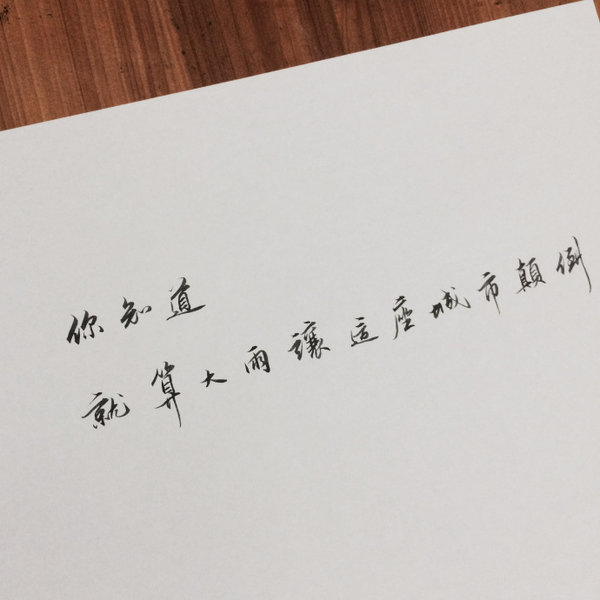 你知道
就算大雨讓這座城市顛倒